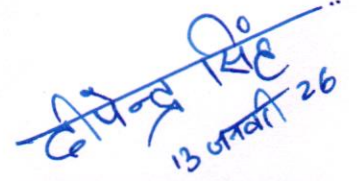 दीपेन्द्र सिंह
13 जनवरी 26